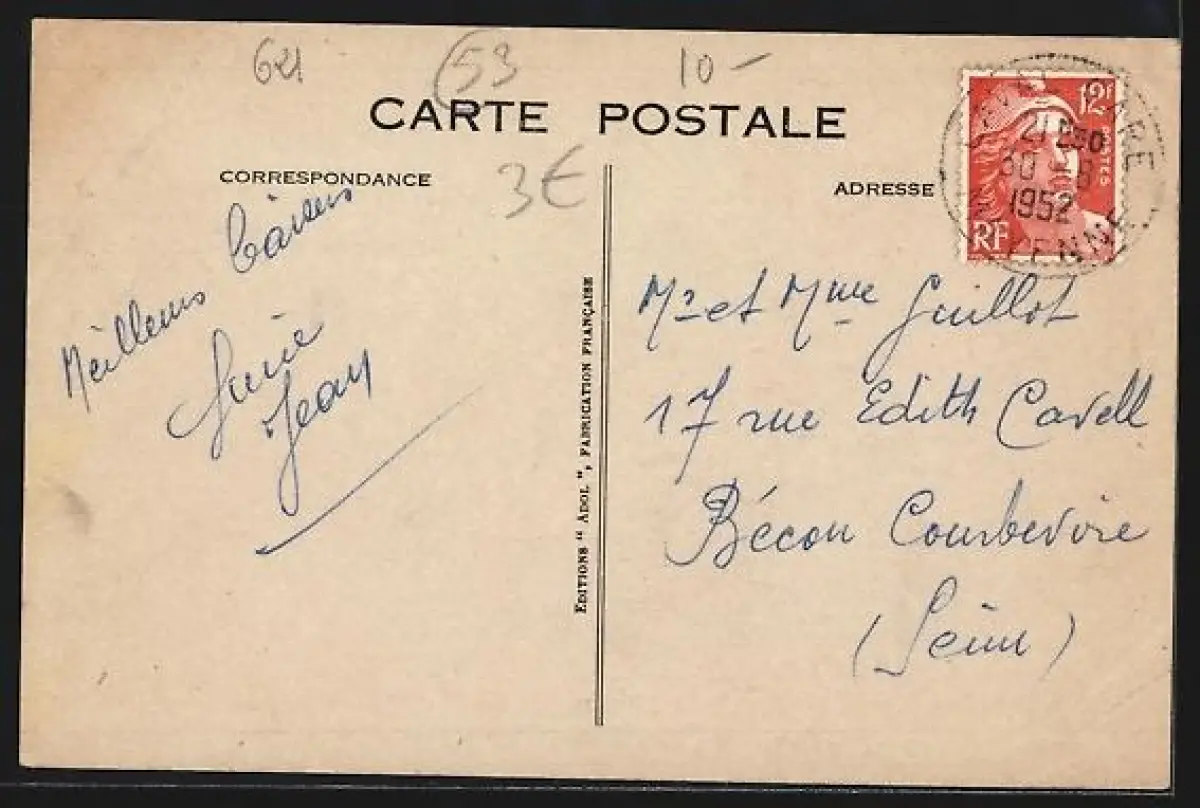 621
53
10 -
CARTE POSTALE
CORRESPONDANCE
3€
ADRESSE
12F
POSTES
RF
21
30 - 8
1952
Meilleurs baisers
Jean
EDITIONS " ADOL ", FABRICATION FRANÇAISE
Mr et Mme Guillot
17 rue Edith Cavell
Bécon Courbevoie
(Seine)